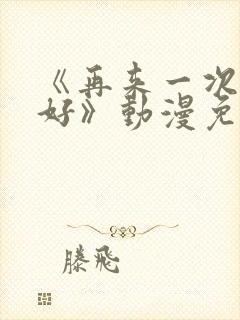 《再来一次
好》動漫免
滕飛